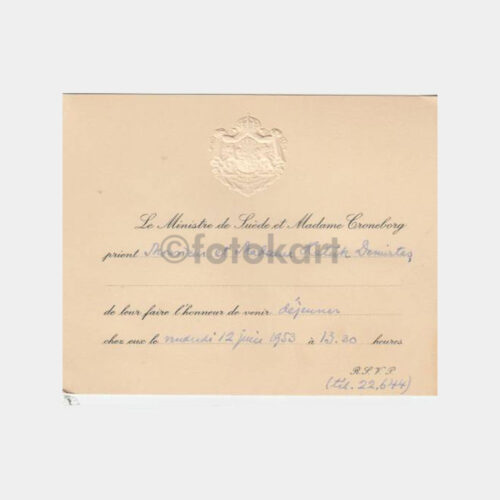 Le Ministre de Suède et Madame Croneborg
prient Monsieur et Madame Demirtaş
de leur faire l'honneur de venir déjeuner
chez eux le vendredi 12 juin 1953 à 13.30 heures
R.S.V.P.
(tél. 22.644)
©fotokart